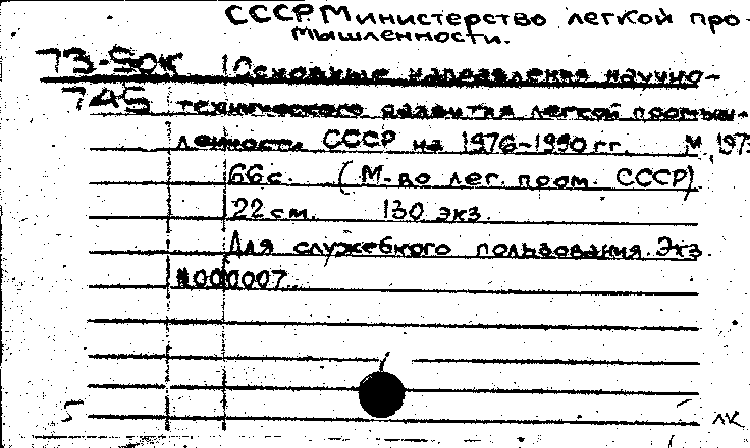 СССР. Министерство легкой про-
мышленности.
73-50к Основные направления научно-
745 технического развития легкой промыш-
ленности СССР на 1976-1990 гг. М., 197
66 с. (М-во лег. пром. СССР).
22 см. 130 экз.
Для служебного пользования. Экз.
№000007.
5